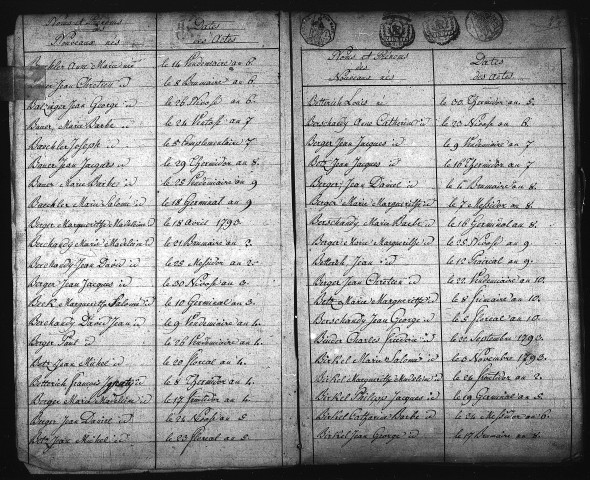 Noms et Prénoms
des
Nouveaux nés
Dates
des Actes
Baechler Anne Marie née le 14 Vendemiaire an 6.
Bauer Jean Chretien id le 8 Brumaire an 6.
Balzinger Jean George id le 26 Nivose an 6.
Bauer, Marie Barbe id le 26 Ventose an 7
Baechler Joseph id le 5 Complementaire 7.
Bauer Jean Jacques id le 29 Thermidor an 8.
Bauer Marie Barbe id le 25 Vendemiaire an 9
Baechler Marie Salomé id le 18 Germinal an 9
Berger Marguerithe Madeleine id le 18 avril 1793.
Berschandy Marie Madelein id le 21 Brumaire an 2.
Berschandy Jean David id le 25 Messidor an 2.
Berger Jean Jacques id le 30 Nivose an 3.
Beck Marguerithe Salomé id le 10 Germinal an 3.
Berschandy David Jean id le 9 Vendemiaire an 4.
Berger Paul id le 26 Vendemiaire an 4.
Betz Jean Michel id le 20 floreal an 4.
Betterich françois Ignatz id le 8 Thermidor an 4.
Berger Marie Madeleine id le 17 fructidor an 4.
Berger Jean Daniel id le 24 Nivose an 5.
Betz Jean Michel id le 23 floreal an 5.
Noms et Prénoms
des
Nouveaux nés
Dates
des Actes
Betterich Louis id le 30 Thermidor an 5.
Berschandy Anne Catherine id le 23 Nivose an 6.
Berger Jean Jacques id le 9 Vendemiaire an 7
Betz Jean Jacques id le 16 Thermidor an 7
Berger Jean Daniel id le 15 Brumaire an 8.
Berger Marie Marguerithe id le 7 Messidor an 8.
Berschandy Marie Barbe id le 16 Germinal an 8.
Berger Marie Marguerithe id le 25 Nivose an 9.
Betterich Jean id le 12 Prairial an 9.
Berger Jean Chretien id le 22 Vendemiaire an 10.
Betz Marie Marguerithe id le 8 frimaire an 10.
Berschandy Jean George id le 5 floreal an 10.
Binder Charles Frederic id le 22 Septembre 1793.
Birkel Marie Salomé id le 3 Novembre 1793.
Birkel Marguerithe Madeleine id le 24 fructidor an 2.
Birkel Philippe Jacques id le 19 Germinal an 5.
Birkel Catharin Barbe id le 24 Messidor an 6.
Birkel Jean George id le 17 Brumaire an 8.